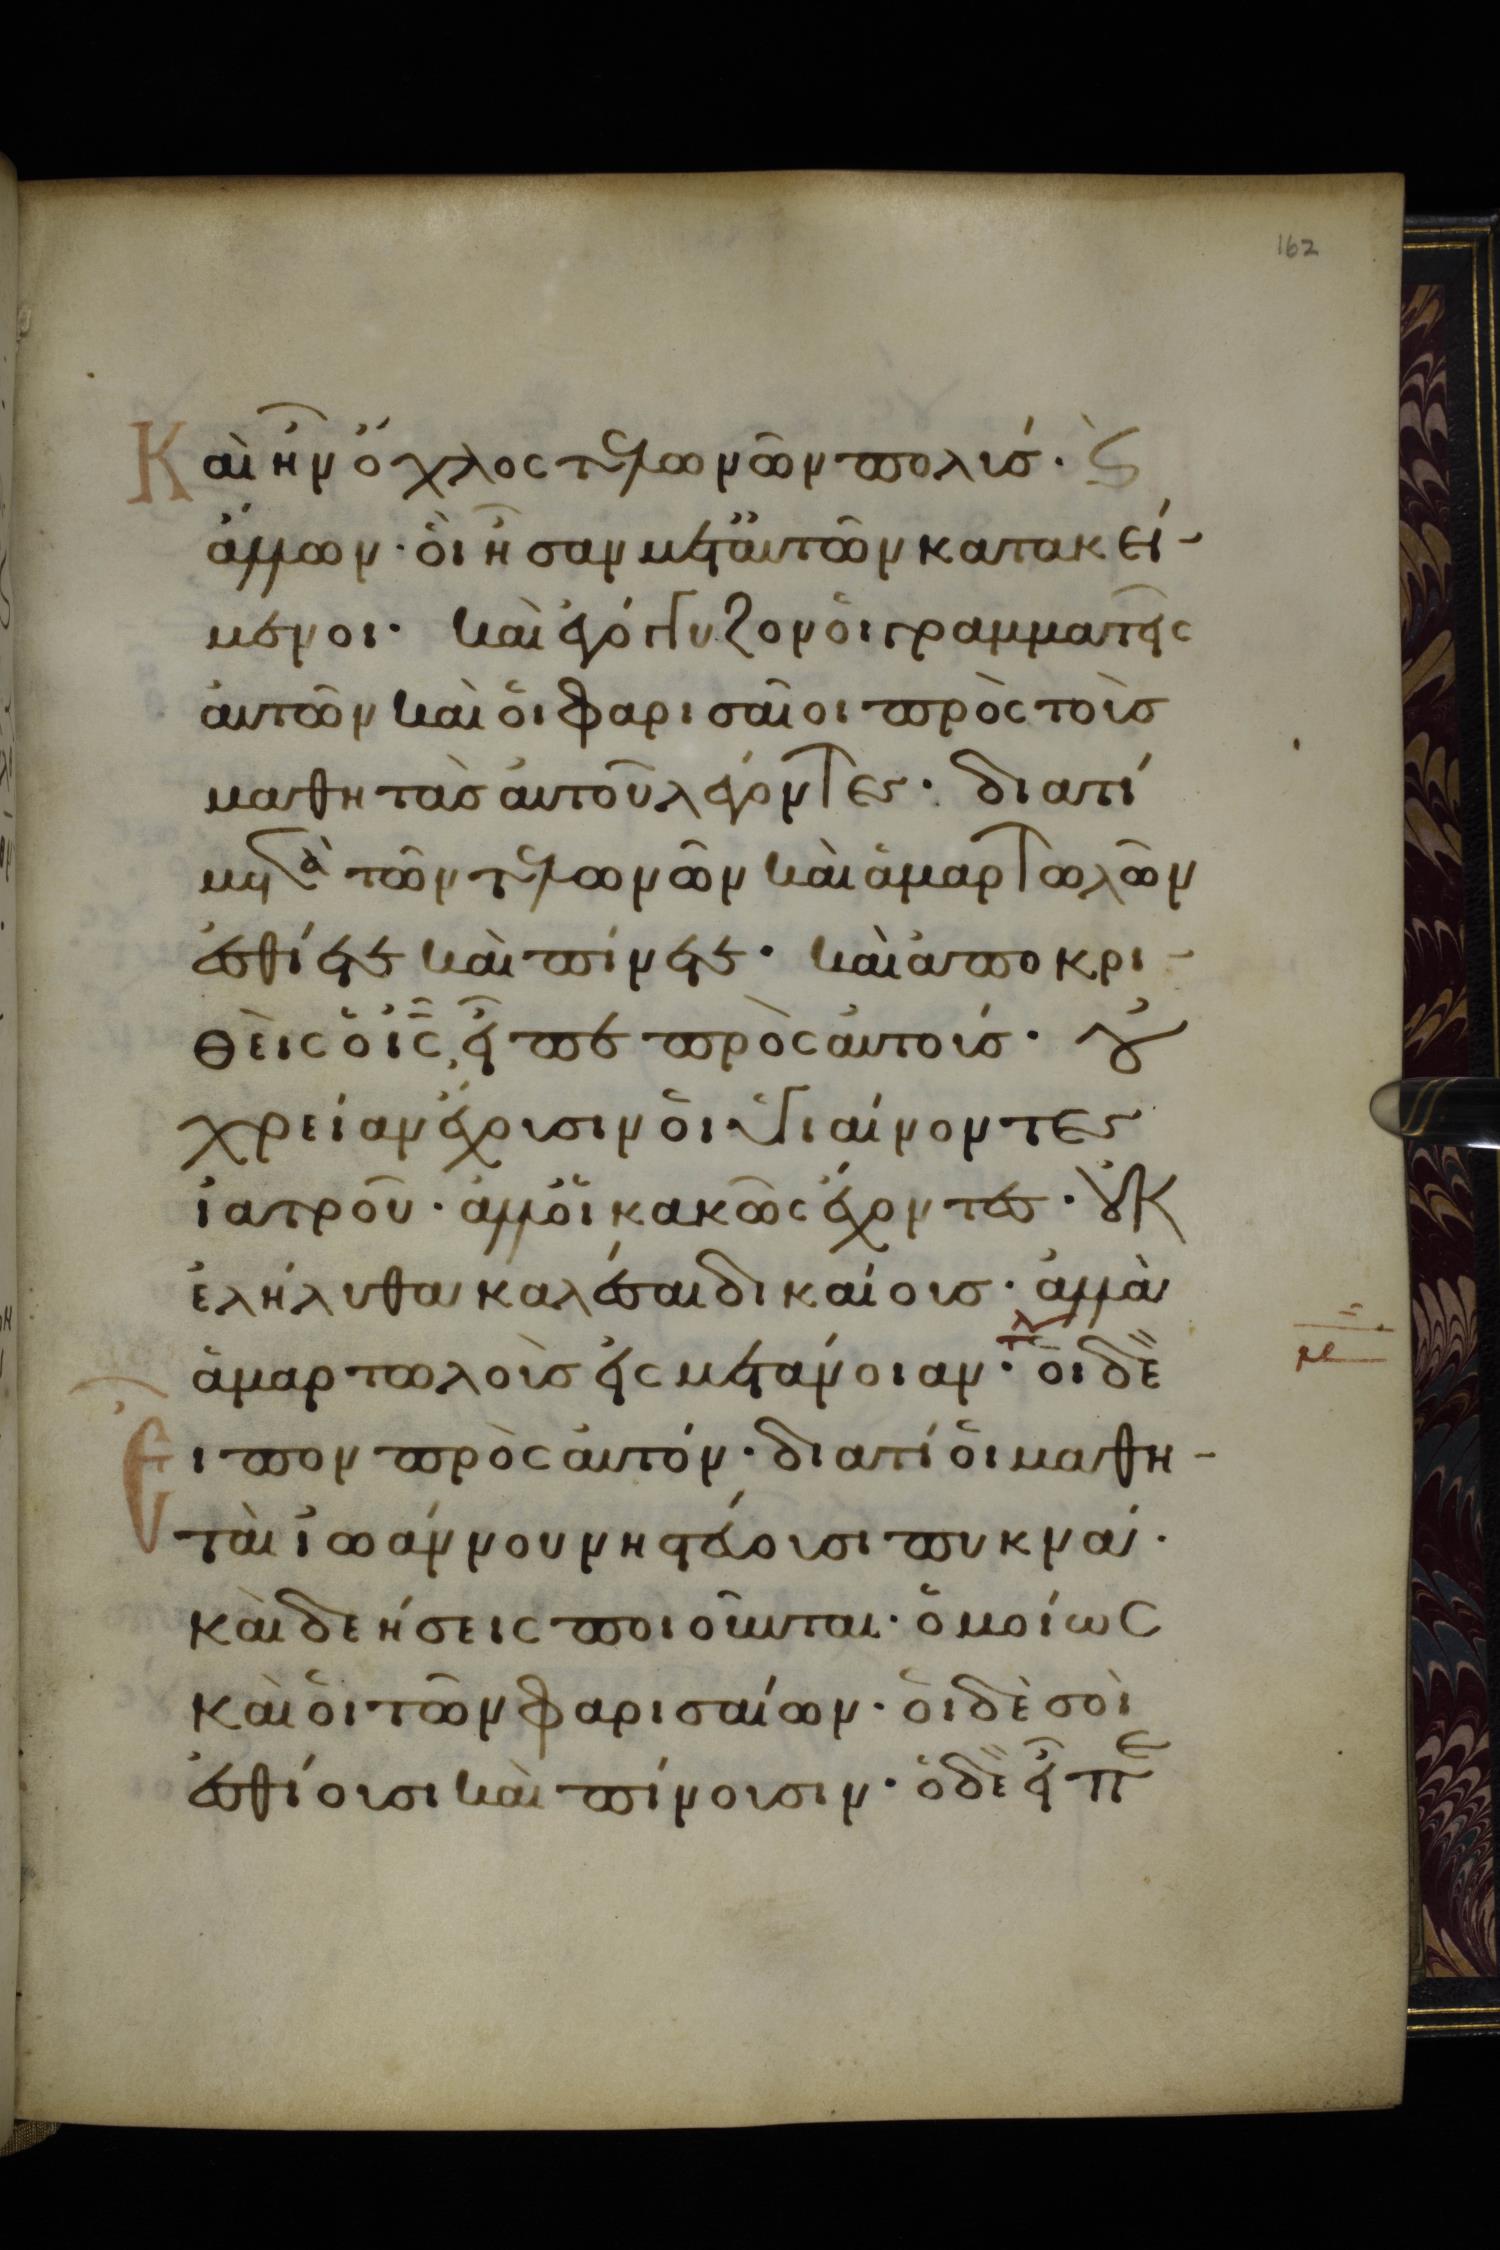 162
Καὶ ἦν ὄχλος τελωνῶν πολύς· ϗ
ἄλλων· οἳ ἦσαν μετ' αὐτῶν κατακεί-
μενοι· καὶ ἐγόγγυζον οἱ γραμματεῖς
αὐτῶν καὶ οἱ φαρισαῖοι πρὸς τοὺς
μαθητὰς αὐτοῦ λέγοντες· διατί
μετὰ τῶν τελωνῶν καὶ ἁμαρτωλῶν
ἐσθίετε καὶ πίνετε· καὶ ἀποκρι-
θεὶς ὁ ἰ̅ς̅ εἶπε πρὸς αὐτούς· οὐ
χρείαν ἔχουσιν οἱ ὑγιαίνοντες
ἰατροῦ· ἀλλ' οἱ κακῶς ἔχοντες· οὐκ
ἐλήλυθα καλέσαι δικαίους· ἀλλὰ
ἁμαρτωλοὺς εἰς μετάνοιαν· οἱ δὲ
Εἶπον πρὸς αὐτόν· διατί οἱ μαθη-
ταὶ ἰωάννου νηστεύουσι πυκνά·
καὶ δεήσεις ποιοῦνται· ὁμοίως
καὶ οἱ τῶν φαρισαίων· οἱ δὲ σοὶ
ἐσθίουσι καὶ πίνουσιν· ὁ δὲ εἶπε